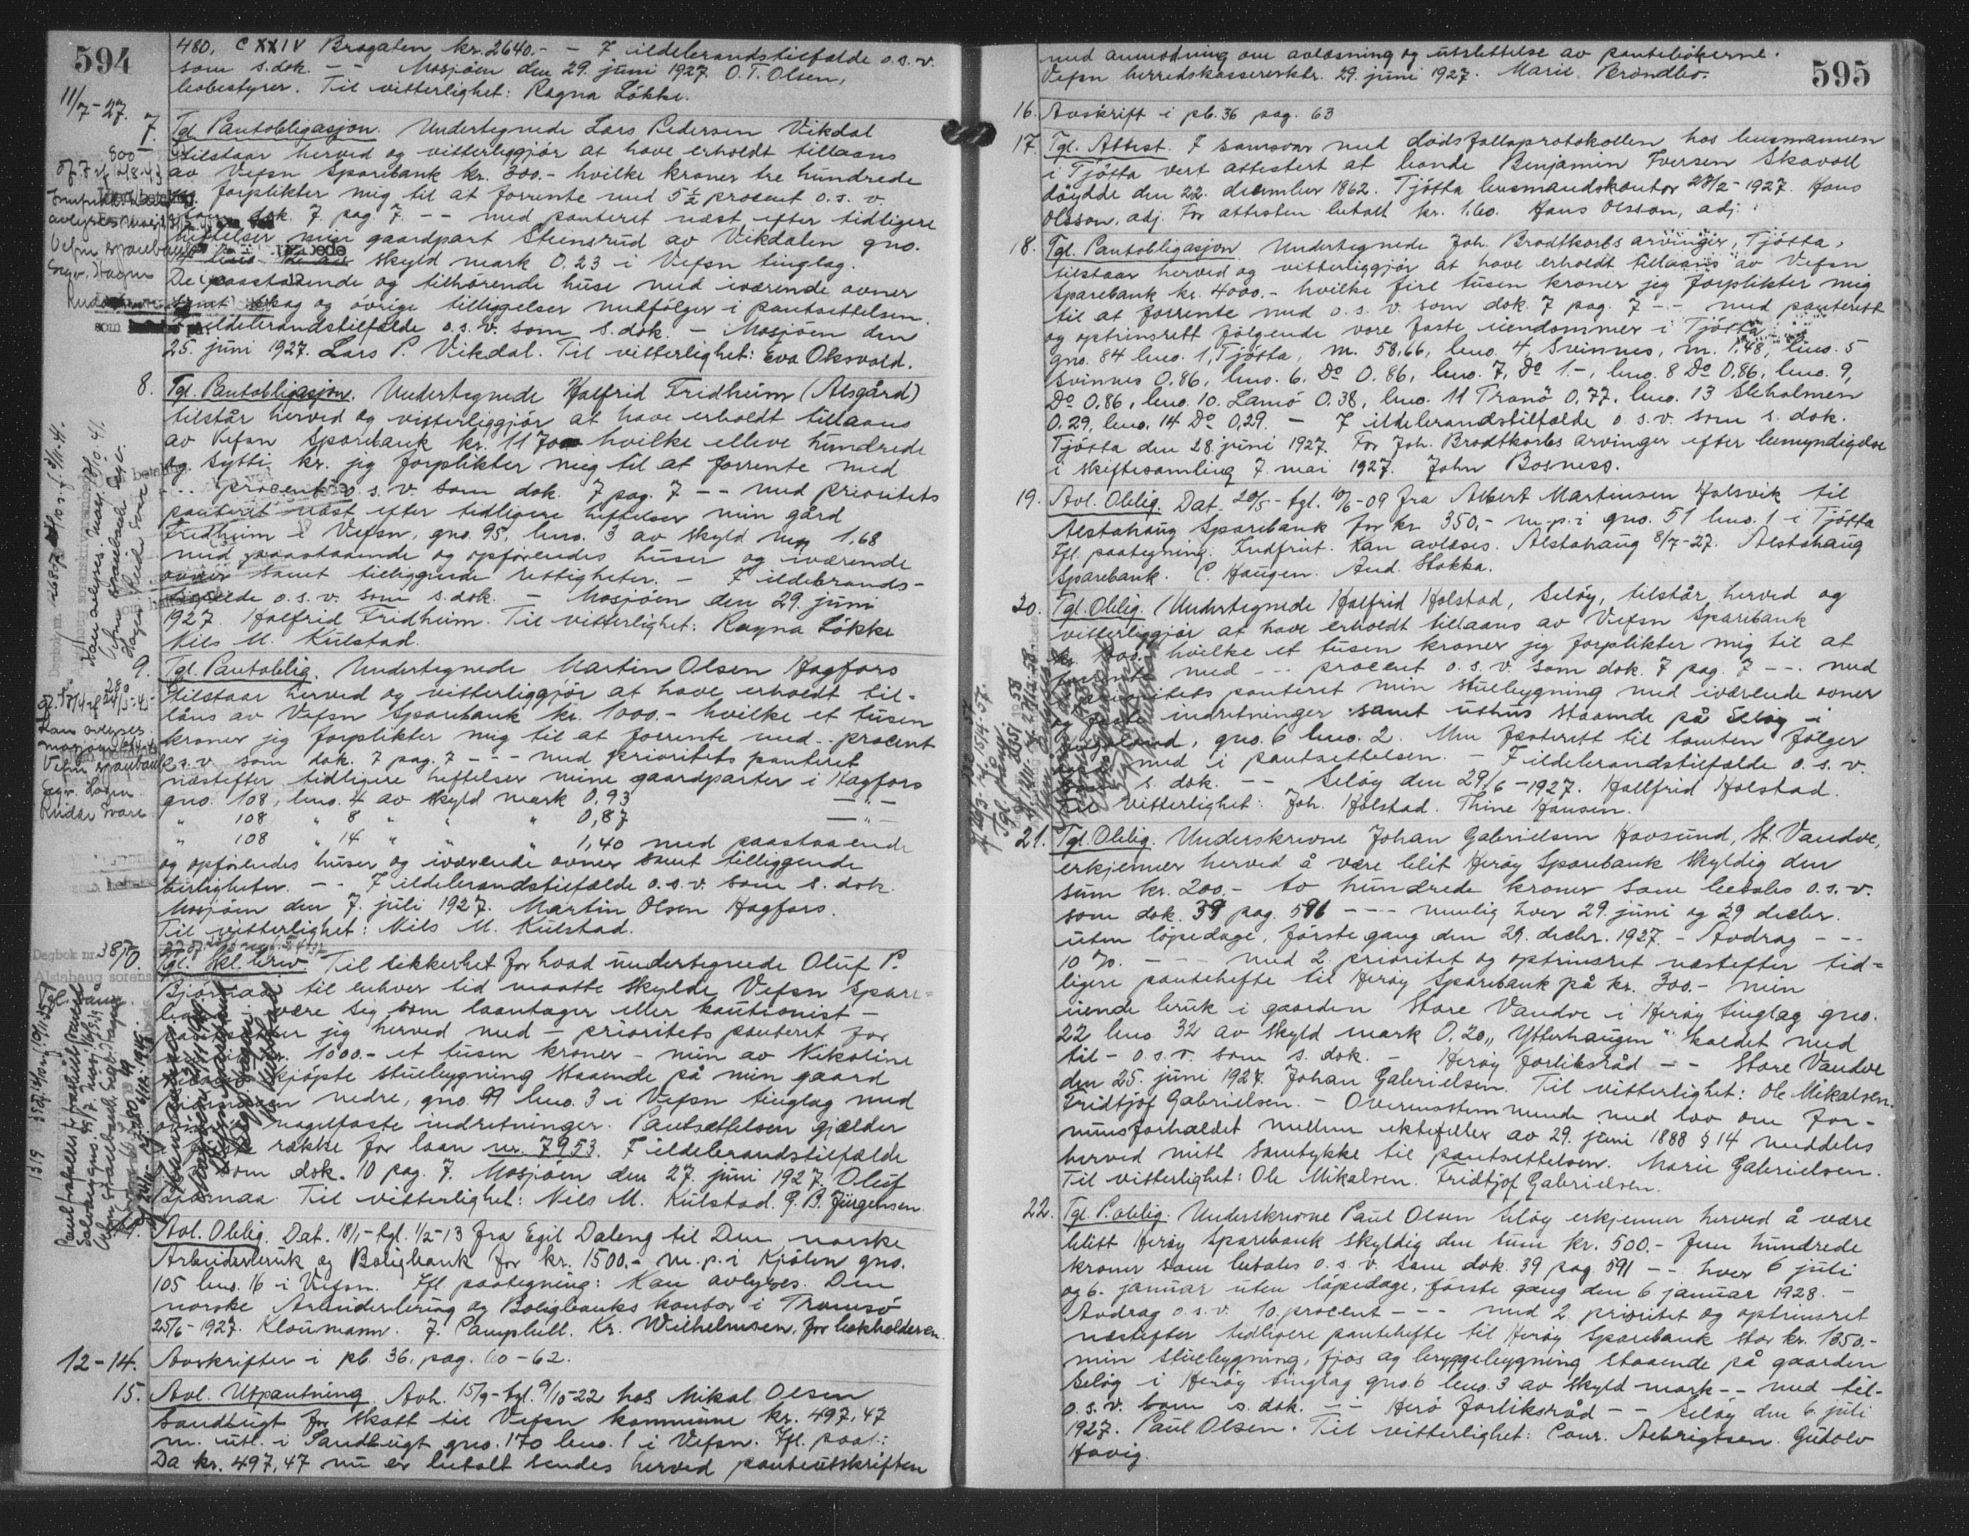 594
480. CXXIV Brogaten kr. 2640.- - I ildebrandstilfælde o.s.v.
som s.dok. - - Mosjøen den 29. juni 1927. O.T. Olsen,
bobestyrer. Til vitterlighet: Ragna Løkke.
11/7-27.
7. Tgl. Pantobligasjon. Undertegnede Lars Pedersen Vikdal
tilstaar herved og vitterliggjør at have erholdt tillaans
av Vefsn Sparebank kr. 300.- hvilke kroner tre hundrede
jeg forplikter mig til at forrente med 5½ procent o.s.v.
som dok. 7 pag. 7 - - med panteret næst efter tidligere
heftelser min gaardpart Steinsrud av Vikdalen gno.
skyld mark 0.23 i Vefsn tinglag.
De paastaaende og tilhørende huse med iværende ovner
samt skog og øvrige tilligelser medfølger i pantsettelsen.
I ildebrandstilfælde o.s.v. som s.dok. - Mosjøen den
25. juni 1927. Lars P. Vikdal. Til vitterlighet: Eva Oksvold.
8. Tgl. Pantobligasjon. Undertegnede Halfrid Fridheim (Alsgård)
tilstår herved og vitterliggjør at have erholdt tillaans
av Vefsn Sparebank kr. 1170.- hvilke elleve hundrede
og sytti kr. jeg forplikter mig til at forrente med
... procent o.s.v. som dok. 7 pag. 7 - - med prioritets
panteret næst efter tidligere heftelser min gård
Fridheim i Vefsn, gno. 95, bno. 3 av skyld m 1,68
med paastaaende og opførendes huser og iværende
ovner samt tilliggende rettigheter. - I ildebrands-
tilfælde o.s.v. som s.dok. - Mosjøen den 29. juni
1927. Halfrid Fridheim. Til vitterlighet: Ragna Løkke
Nils M. Kulstad.
9. Tgl. Pantoblig. Undertegnede Martin Olsen Hagfors
tilstaar herved og vitterliggjør at have erholdt til-
låns av Vefsn Sparebank kr. 1000.- hvilke et tusen
kroner jeg forplikter mig til at forrente med .. procent
o.s.v. som dok. 7 pag. 7 - - - med prioritets panteret
næstefter tidligere heftelser mine gaardparter i Hagfors
gno. 108, bno. 4 av skyld mark 0,93
" 108 " 8 " " " 0,87
" 108 " 14 " " " 1,40 med paastaaende
og opførendes huser og iværende ovner samt tilliggende
herligheter. - - I ildebrandstilfælde o.s.v. som s.dok.
Mosjøen den 7. juli 1927. Martin Olsen Hagfors.
Til vitterlighet: Nils M. Kulstad.
Tgl. Skl.brev Til sikkerhet for hvad undertegnede Oluf P.
Bjørnaa til enhver tid maatte skylde Vefsn Spare-
være sig som laantager eller kautionist -
jeg herved med - prioritets panteret for
kr. 1000.- et tusen kroner - min av Nikoline
kjøpte stuebygning staaende på min gaard
nedre, gno. 99 bno. 3 i Vefsn tinglag med
nagelfaste indretninger. Pantsettelsen gjælder
række for laan nr. 7953. I ildebrandstilfælde
som dok. 10 pag. 7. Mosjøen den 27. juni 1927. Oluf
Bjørnaa. Til vitterlighet: Nils M. Kulstad. G.B. Jürgensen.
Avl. Oblig. Dat. 18/1-tgl. 1/2-13 fra Egil Daleng til Den norske
Arbeiderbruk og Boligbank for kr. 1500.- m.p.i Kjølen gno.
105 bno. 16 i Vefsn. Ifl. paategning: Kan avlyses. Den
norske Arbeiderbruk og Boligbanks kontor i Tromsø
25/6-1927. Kloumann. J. Campbell. Kr. Wilhelmsen, for bokholderen.
12-14. Avskrifter i pb. 36. pag. 60-62.
15. Avl. Utpantning. Avh. 15/9-tgl. 9/10-22 hos Mikal Olsen
Sandbugt for skatt til Vefsn kommune kr. 497,47
m. utl. i Sandbugt gno. 170 bno. 1 i Vefsn. Ifl. paat.:
Da kr. 497,47 nu er betalt sendes herved panteutskriften
595
med anmodning om avlæsning og utslettelse av pantebøkerne.
Vefsn herredskassererktr. 29. juni 1927. Marie Brøndbo.
16. Avskrift i pb. 36 pag. 63
17. Tgl. Attest. I samsvar med dødsfallsprotokollen hos lensmannen
i Tjøtta vert attestert at bonde Benjamin Iversen Skavoll
døydde den 22. december 1862. Tjøtta lensmandskontor 28/2-1927. Hans
Olsson, adj. For attesten betalt kr. 1.60. Hans Olsson, adj.
18. Tgl. Pantobligasjon. Undertegnede Joh. Brodtkorbs arvinger, Tjøtta,
tilstaar herved og vitterliggjør at have erholdt tillaans av Vefsn
Sparebank kr. 4000.- hvilke fire tusen kroner jeg forplikter mig
til at forrente med o.s.v. som dok. 7 pag. 7 - - med panterett
og optrinsrett følgende vore faste eiendommer i Tjøtta
gno. 84 bno. 1, Tjøtta, m. 58.66, bno. 4, Svinnes, m. 1.48, bno. 5
Svinnes 0.86, bno. 6. Do 0.86, bno. 7, Do 1.-, bno. 8 Do 0.86, bno. 9,
Do 0.86, bno. 10. Lamø 0.38, bno. 11 Tranø 0.77. bno. 13 Sleholmen
0.29, bno. 14 Do 0.29. - I ildebrandstilfælde o.s.v. som s.dok.
Tjøtta den 28. juni 1927. For Joh. Brodtkorbs arvinger efter bemyndigelse
i skiftesamling 7. mai 1927. John Bosness.
19. Avl. Oblig. Dat. 20/5-tgl. 10/6-09 fra Albert Martinsen Halsvik til
Alstahaug Sparebank for kr. 350.- m.p.i gno. 51 bno. 1 i Tjøtta
Ifl. paategning. Indfriet. Kan avlæses. Alstahaug 8/7-27. Alstahaug
Sparebank. C. Haugen. And. Stokka.
20. Tgl. Oblig. Undertegnede Halfrid Holstad, Seløy, tilstår herved og
vitterliggjør at have erholdt tillaans av Vefsn Sparebank
hvilke et tusen kroner jeg forplikter mig til at
forrente med - - procent o.s.v. som dok. 7 pag. 7 - - . med
prioritets panteret min stuebygning med iværende ovner
og indretninger samt uthus staaende på Seløy i
gno. 6 bno. 2. Min festerett til tomten følger
med i pantsettelsen. - I ildebrandstilfælde o.s.v.
s.dok. - - Seløy den 29/6-1927. Hallfrid Holstad.
Til vitterlighet: Joh. Holstad. Thine Hansen.
21. Tgl. Oblig. Underskrevne Johan Gabrielsen Havsund, St. Vandve,
erkjenner herved å være blit Herøy Sparebank skyldig den
sum kr. 200.- to hundrede kroner som betales o.s.v.
som dok. 39 pag. 591 - - - nemlig hver 29. juni og 29 decbr.
uten løpedage, første gang den 29. decbr. 1927. - Avdrag - - -
10 %. - - - med 2. prioritet og optrinsret næstefter tid=
ligere pantehefte til Herøy Sparebank på kr. 300.- min
eiende bruk i gaarden Store Vandve i Herøy tinglag gno.
22 bno 32 av skyld mark 0.20 „Ytterhaugen" kaldet med
til- o.s.v. som s.dok. - Herøy forliksråd - - Store Vandve
den 25. juni 1927. Johan Gabrielsen. Til vitterlighet: Ole Mikalsen.
Fridtjof Gabrielsen. - Overensstemmende med lov om for-
muesforholdet mellem ektefeller av 29. juni 1888 § 14 meddeles
herved mitt samtykke til pantsettelsen. Marie Gabrielsen.
Til vitterlighet: Ole Mikalsen. Fridtjof Gabrielsen.
22. Tgl. P.oblig. Underskrevne Paul Olsen Seløy erkjenner herved å være
blitt Herøy Sparebank skyldig den sum kr. 500.- fem hundrede
kroner som betales o.s.v. som dok. 39 pag. 591 - - hver 6 juli
og 6. januar uten løpedage, første gang den 6 januar 1928. -
Avdrag o.s.v. 10 procent - - - med 2. prioritet og optrinsret
næstefter tidligere pantehefte til Herøy Sparebank stor kr. 1350.-
min stuebygning, fjøs og bryggebygning staaende på gaarden
Seløy i Herøy tinglag gno. 6 bno. 3 av skyld mark - - med til-
o.s.v. som s.dok. - - Herø forliksråd - - Seløy den 6. juli
1927. Paul Olsen. Til vitterlighet: Conr. Albrigtsen. Gudolv
Havig.